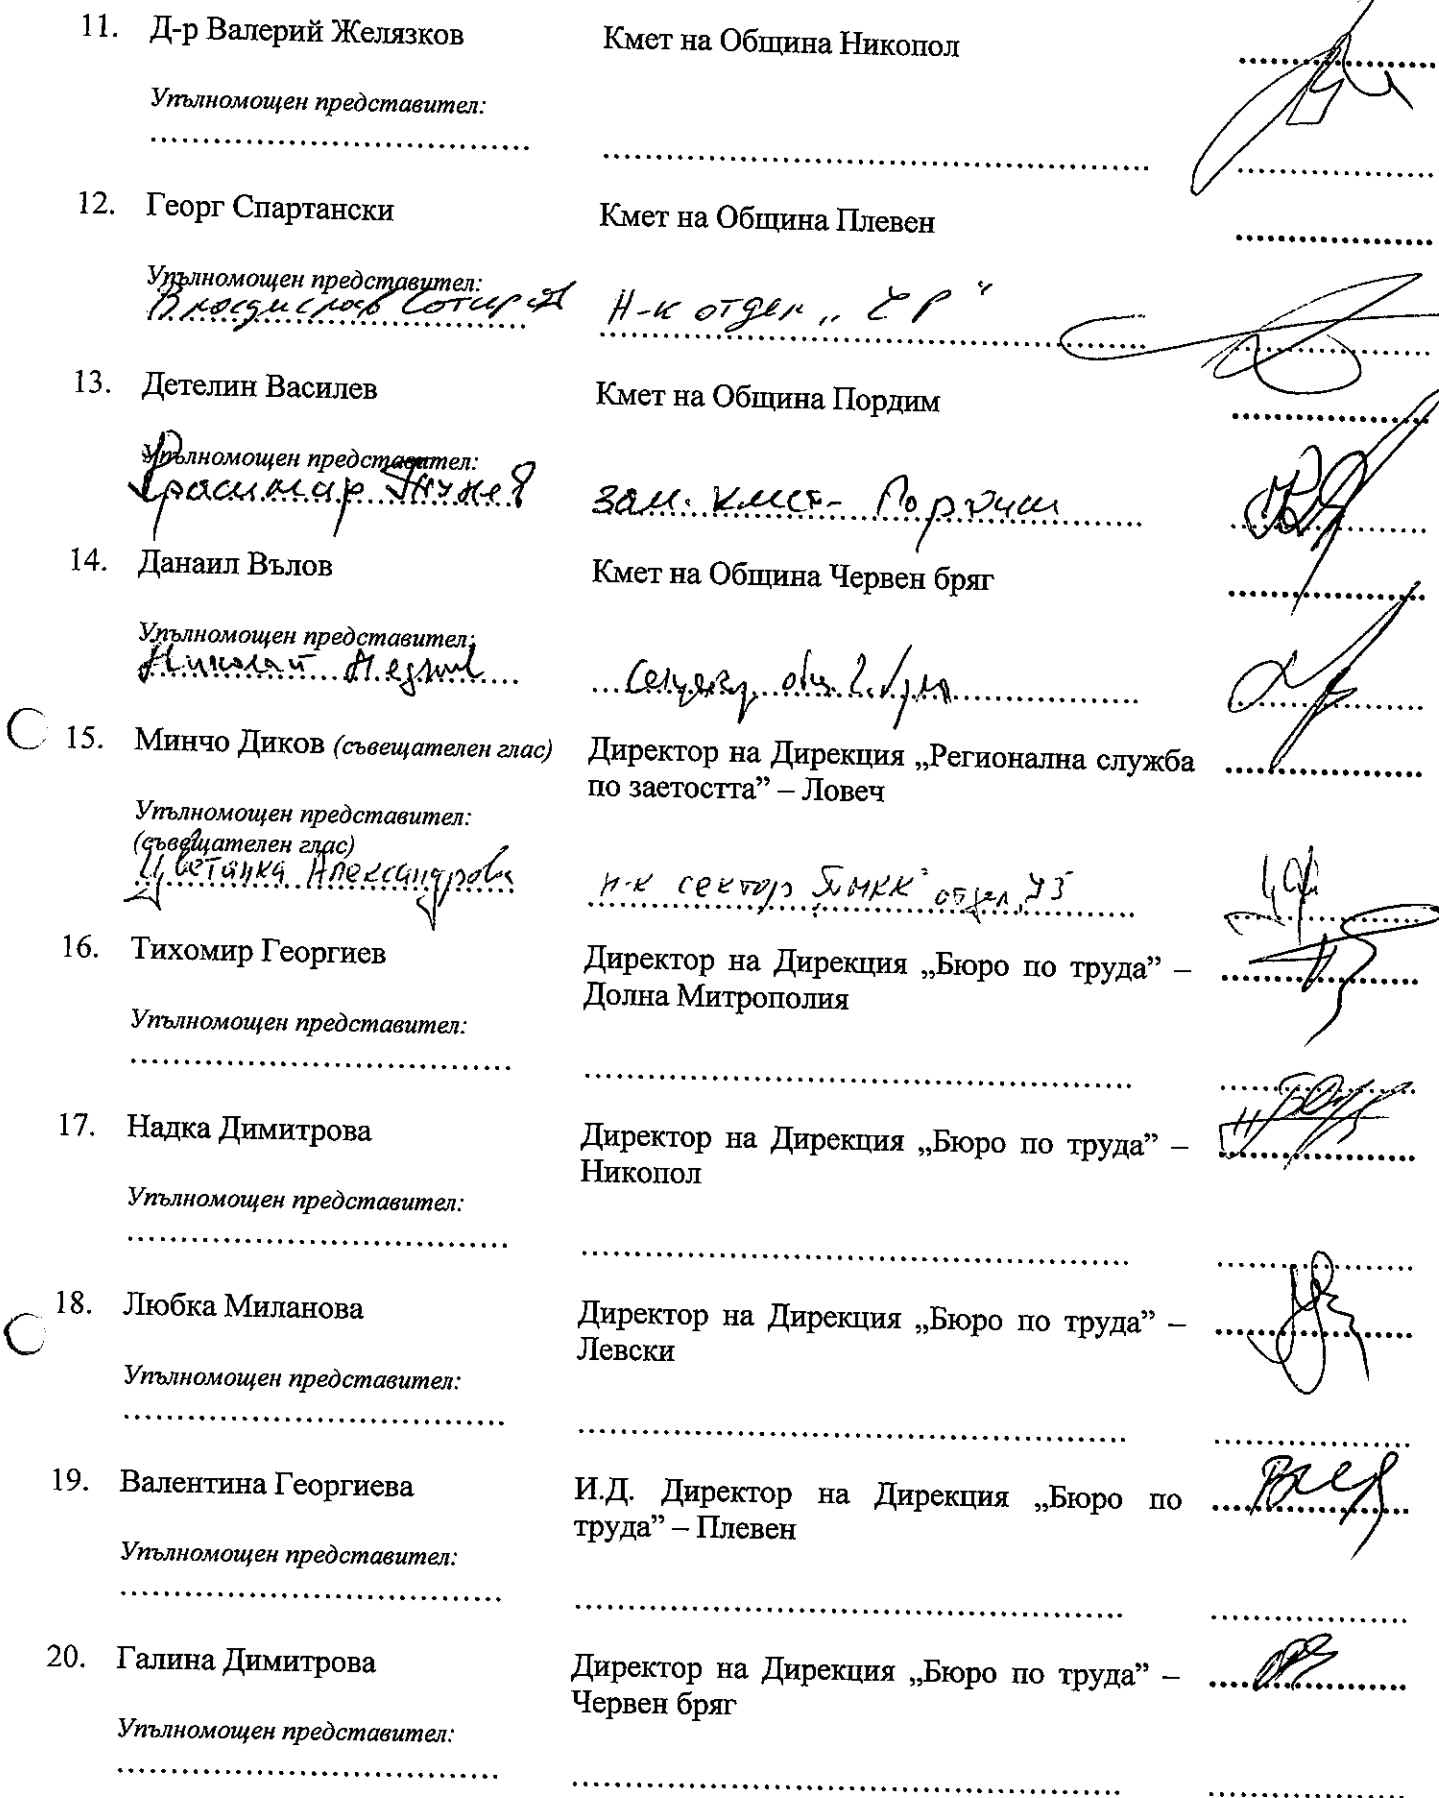 11. Д-р Валерий Желязков Кмет на Община Никопол
Упълномощен представител:
12. Георг Спартански Кмет на Община Плевен
Упълномощен представител:
Владислав Н-к отдел „ ЧР “
13. Детелин Василев Кмет на Община Пордим
Упълномощен представител:
Красимир зам. кмет - Пордим
14. Данаил Вълов Кмет на Община Червен бряг
Упълномощен представител:
Николай
15. Минчо Диков (съвещателен глас) Директор на Дирекция „Регионална служба
по заетостта” – Ловеч
Упълномощен представител:
(съвещателен глас)
Цветанка Александрова н-к сектор отдел
16. Тихомир Георгиев Директор на Дирекция „Бюро по труда” –
Долна Митрополия
Упълномощен представител:
17. Надка Димитрова Директор на Дирекция „Бюро по труда” –
Никопол
Упълномощен представител:
18. Любка Миланова Директор на Дирекция „Бюро по труда” –
Левски
Упълномощен представител:
19. Валентина Георгиева И.Д. Директор на Дирекция „Бюро по
труда” – Плевен
Упълномощен представител:
20. Галина Димитрова Директор на Дирекция „Бюро по труда” –
Червен бряг
Упълномощен представител: